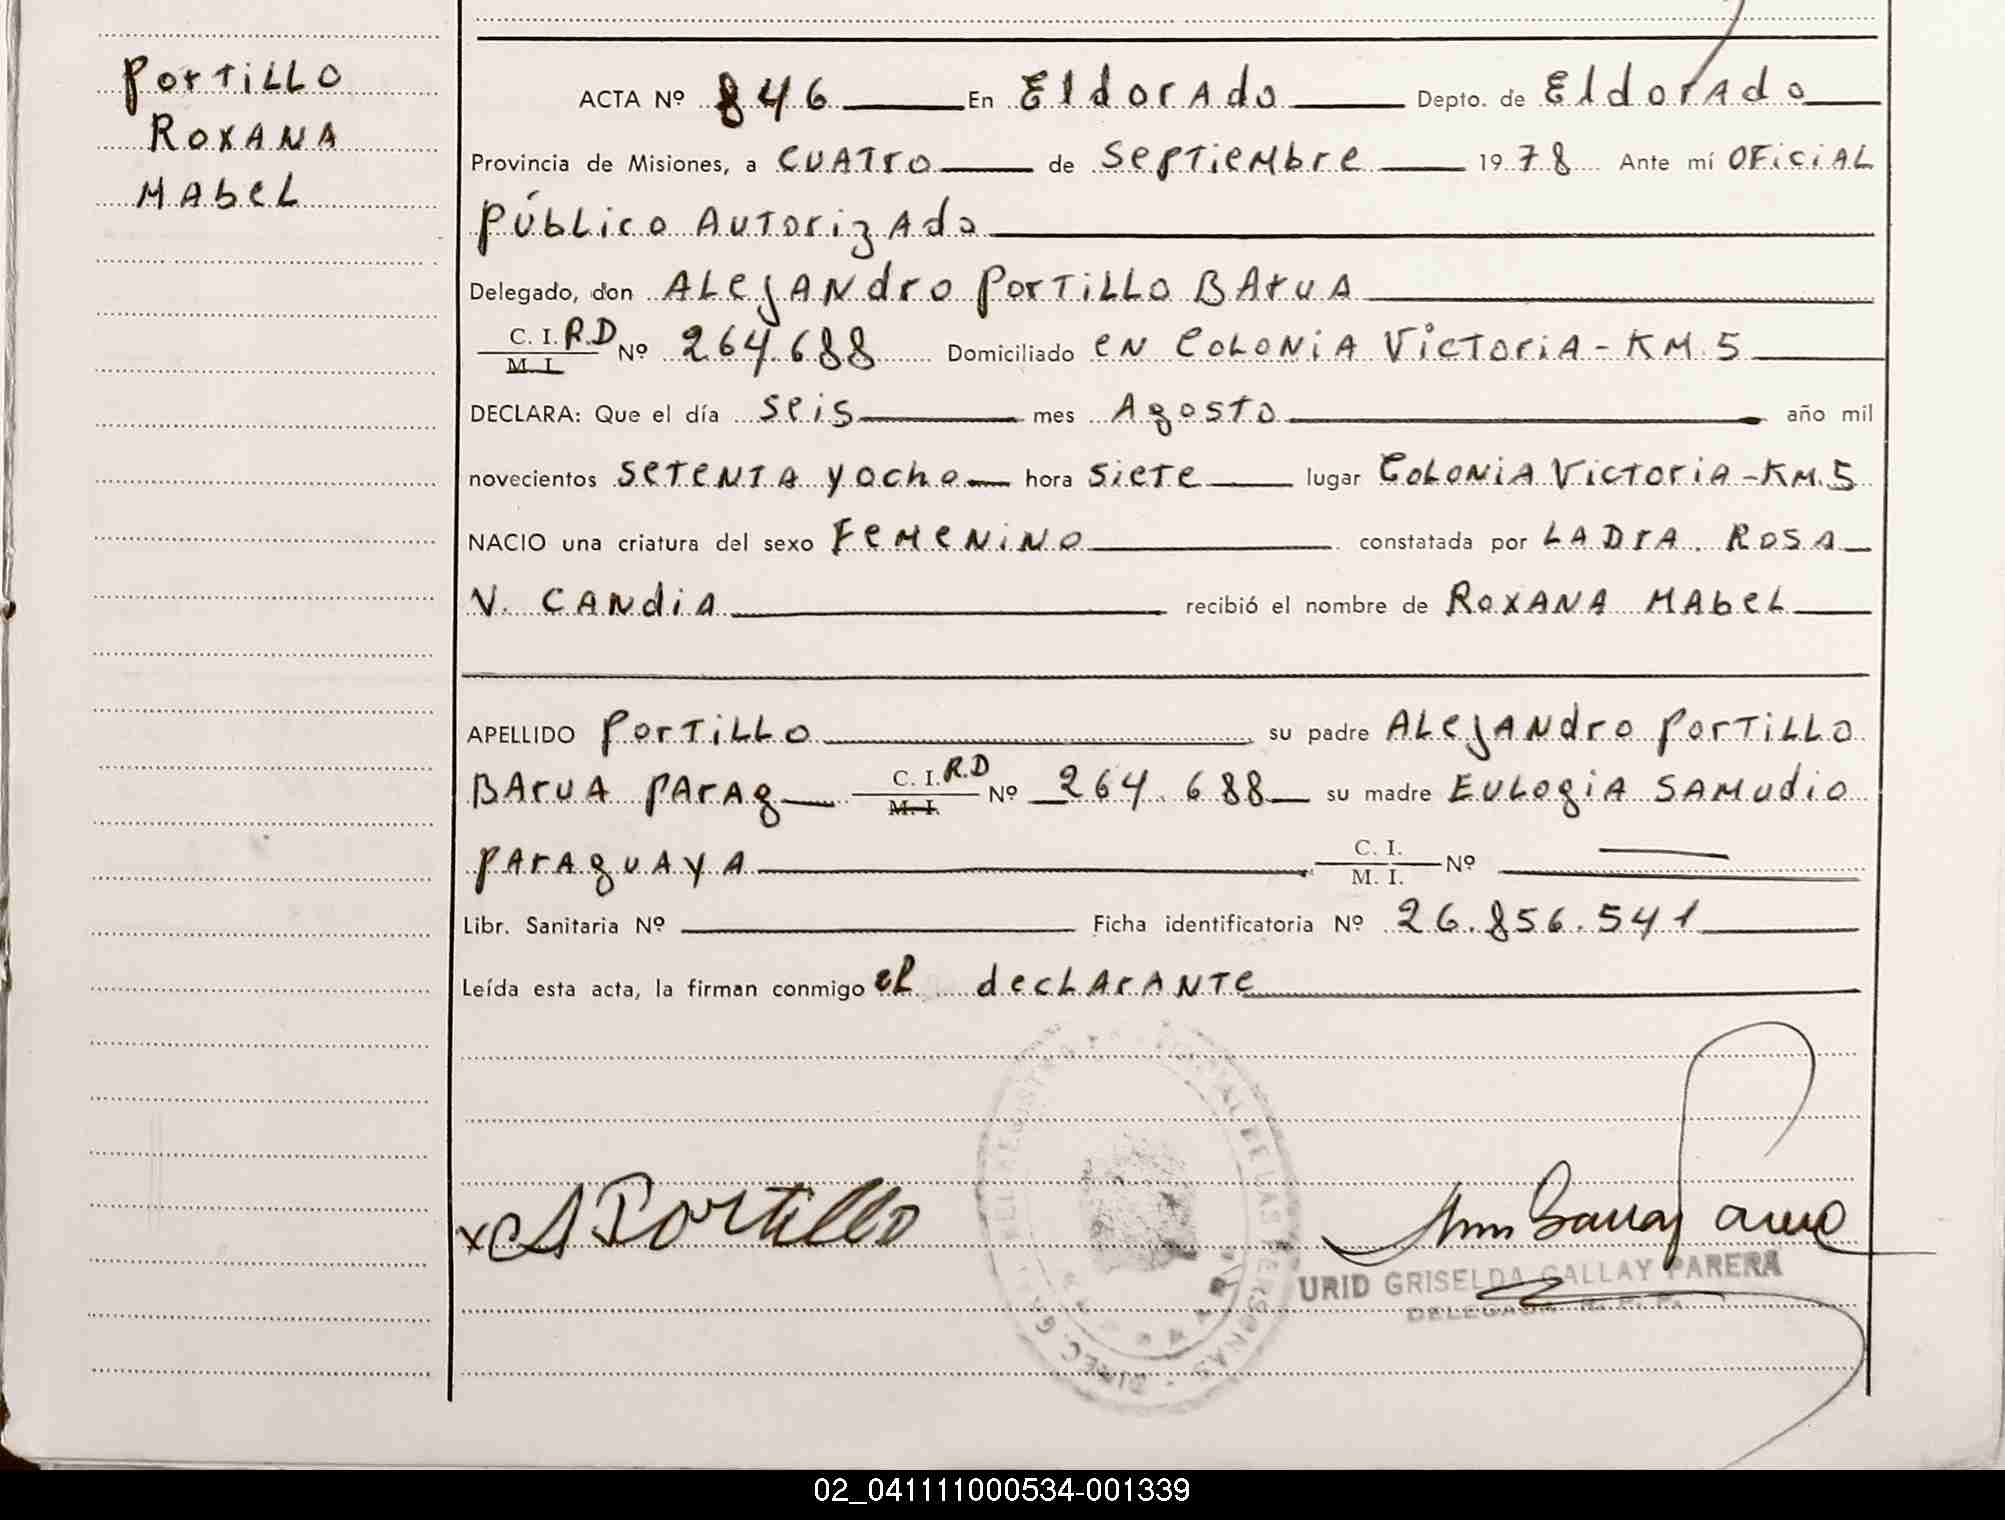 Portillo
Roxana
Mabel
ACTA Nº 846 En Eldorado Depto. de Eldorado
Provincia de Misiones, a cuatro de Septiembre 1978 Ante mí Oficial
Público Autorizado
Delegado, don Alejandro Portillo Barua
C. I. R.D
M. I. Nº 264.688 Domiciliado en Colonia Victoria - KM.5
DECLARA: Que el día seis mes Agosto año mil
novecientos setenta y ocho hora siete lugar Colonia Victoria - KM.5
NACIO una criatura del sexo Femenino constatada por La Dra. Rosa
V. Candia recibió el nombre de Roxana Mabel
APELLIDO Portillo su padre Alejandro Portillo
Barua Parag C. I. R.D
M. I. Nº 264.688 su madre Eulogia Samudio
Paraguaya C. I.
M. I. Nº
Libr. Sanitaria Nº Ficha identificatoria Nº 26.856.541
Leída esta acta, la firman conmigo el declarante
x A Portillo
URID GRISELDA GALLAY PARERA
DELEGADA R. P. P.
02_041111000534-001339